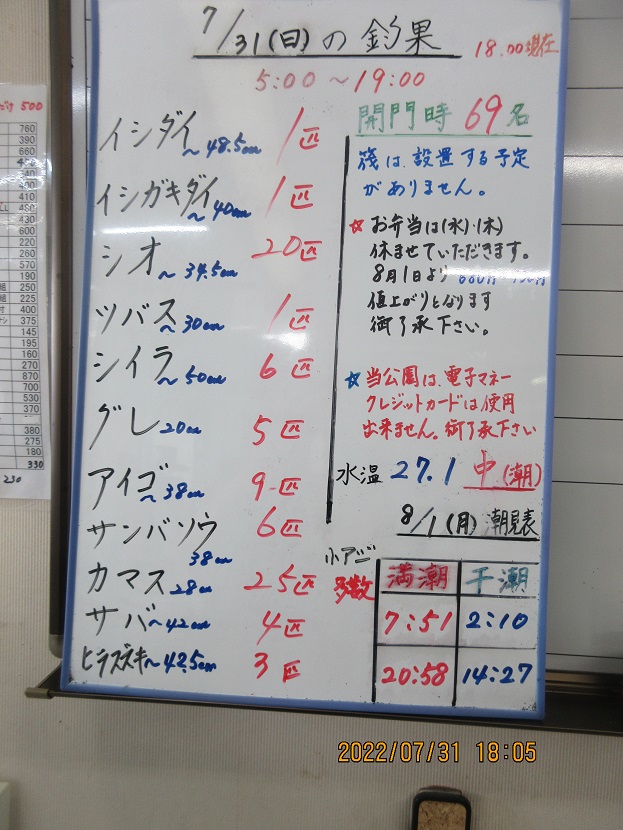 7/31(日)の釣果
18.00現在
5:00～19:00
イシダイ ～48.5cm 1匹
イシガキダイ ～40cm 1匹
シオ ～34.5cm 20匹
ツバス ～30cm 1匹
シイラ ～50cm 6匹
グレ 20cm 5匹
アイゴ ～38cm 9匹
サンバソウ 38cm 6匹
カマス 28cm 25匹
サバ ～42cm 4匹
ヒラスズキ ～42.5cm 3匹
小アジ 多数
開門時 69名
筏は、設置する予定
がありません。
☆ お弁当は(水)・(木)
休ませていただきます。
8月1日より
値上がりとなります
御了承下さい。
☆ 当公園は、電子マネー
クレジットカードは使用
出来ません。御了承下さい
水温 27.1 中(潮)
8/1(月)潮見表
満潮 干潮
7:51 2:10
20:58 14:27
500
760
390
660
410
480
430
600
220
260
570
190
225
250
400
375
145
195
160
270
870
700
530
370
380
275
180
330
230
2022/07/31 18:05